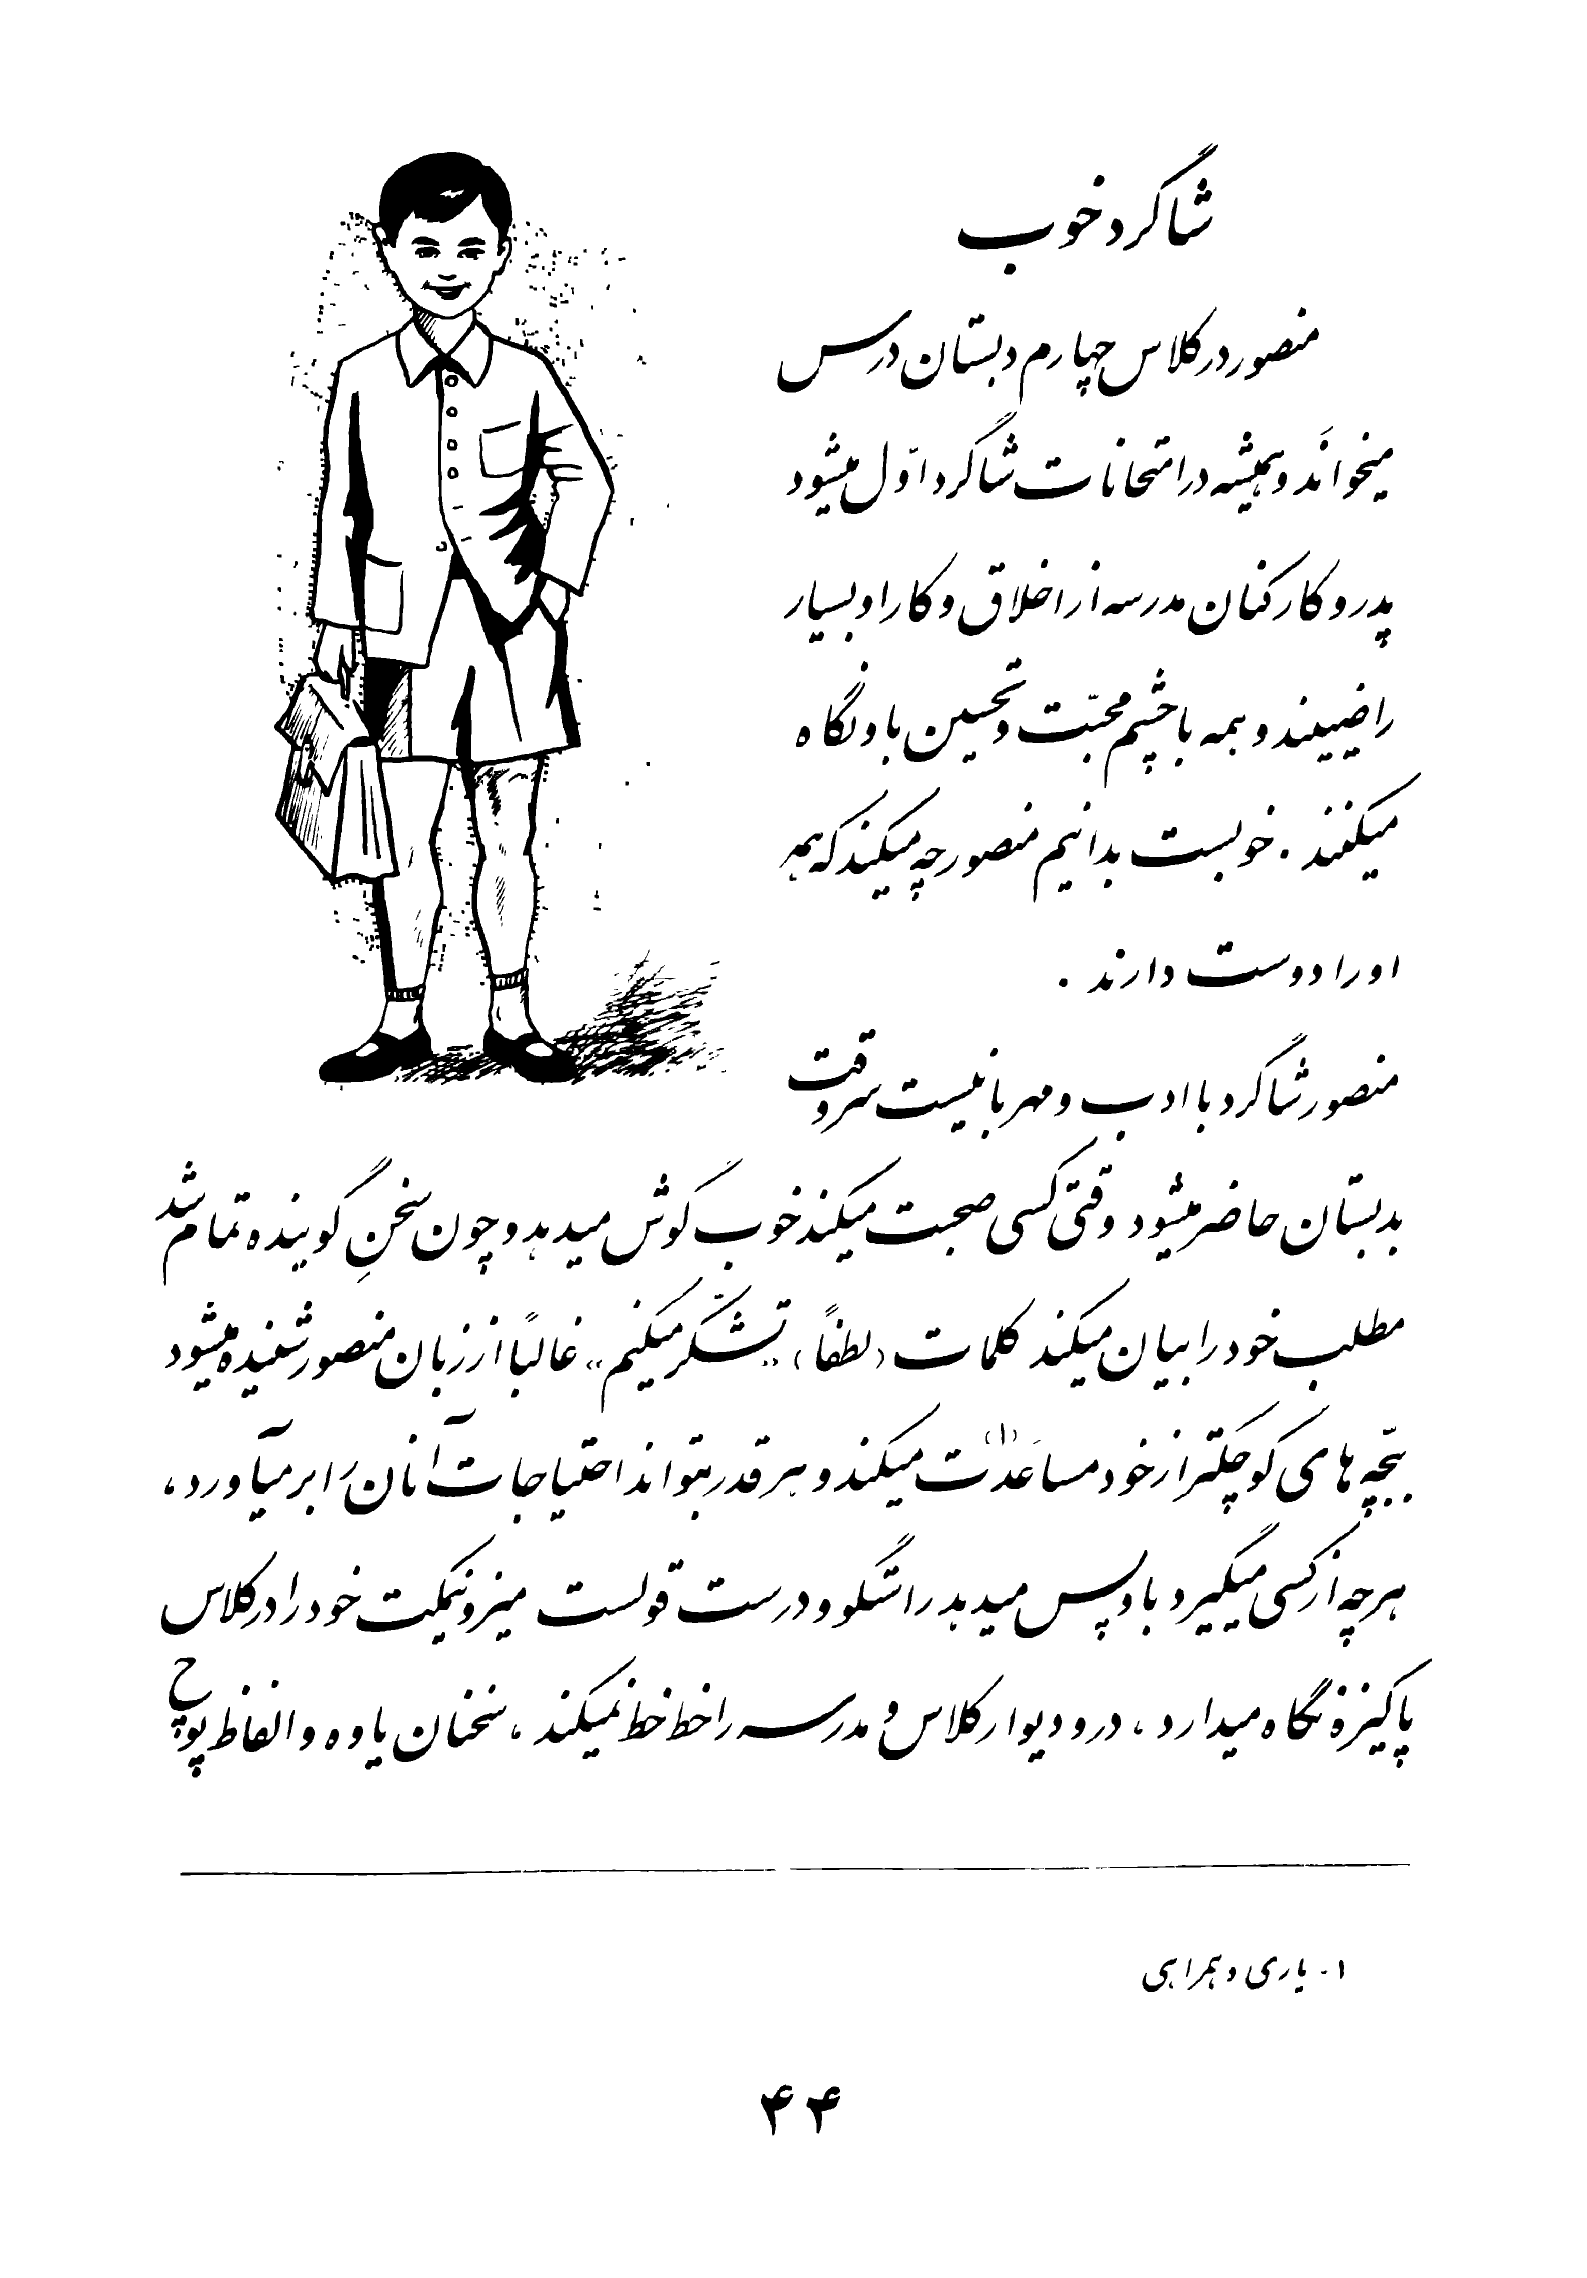 شاگرد خوب
منصور در کلاس چهارم دبستان درس
میخوانَد و همیشه در امتحانات شاگرد اوّل میشود
پدر و کارکنان مدرسه از اخلاق و کار او بسیار
راضییند و همه با چشم محبّت و تحسین باو نگاه
میکنند . خوبست بدانیم منصور چه میکند که همه
او را دوست دارند .
منصور شاگرد با ادب و مهربانیست سر وقت
بدبستان حاضر میشود وقتی کسی صحبت میکند خوب گوش میدهد و چون سخنِ گوینده تمام شد
مطلب خود را بیان میکند کلمات (لطفاً) ,, تشکر میکنم ,, غالباً از زبان منصور شنیده میشود
ببچّه های کوچکتر از خود مساعَدَت (۱) میکند و هر قدر بتواند احتیاجات آنان را بر میآورد ،
هر چه از کسی میگیرد باو پس میدهد راستگو و درست قولست میز و نیمکت خود را در کلاس
پاکیزه نگاه میدارد ، در و دیوار کلاس و مدرسه را خط خط نمیکند ، سخنان یاوه و الفاظ پوچ
۱ - یاری و همراهی
۴۴